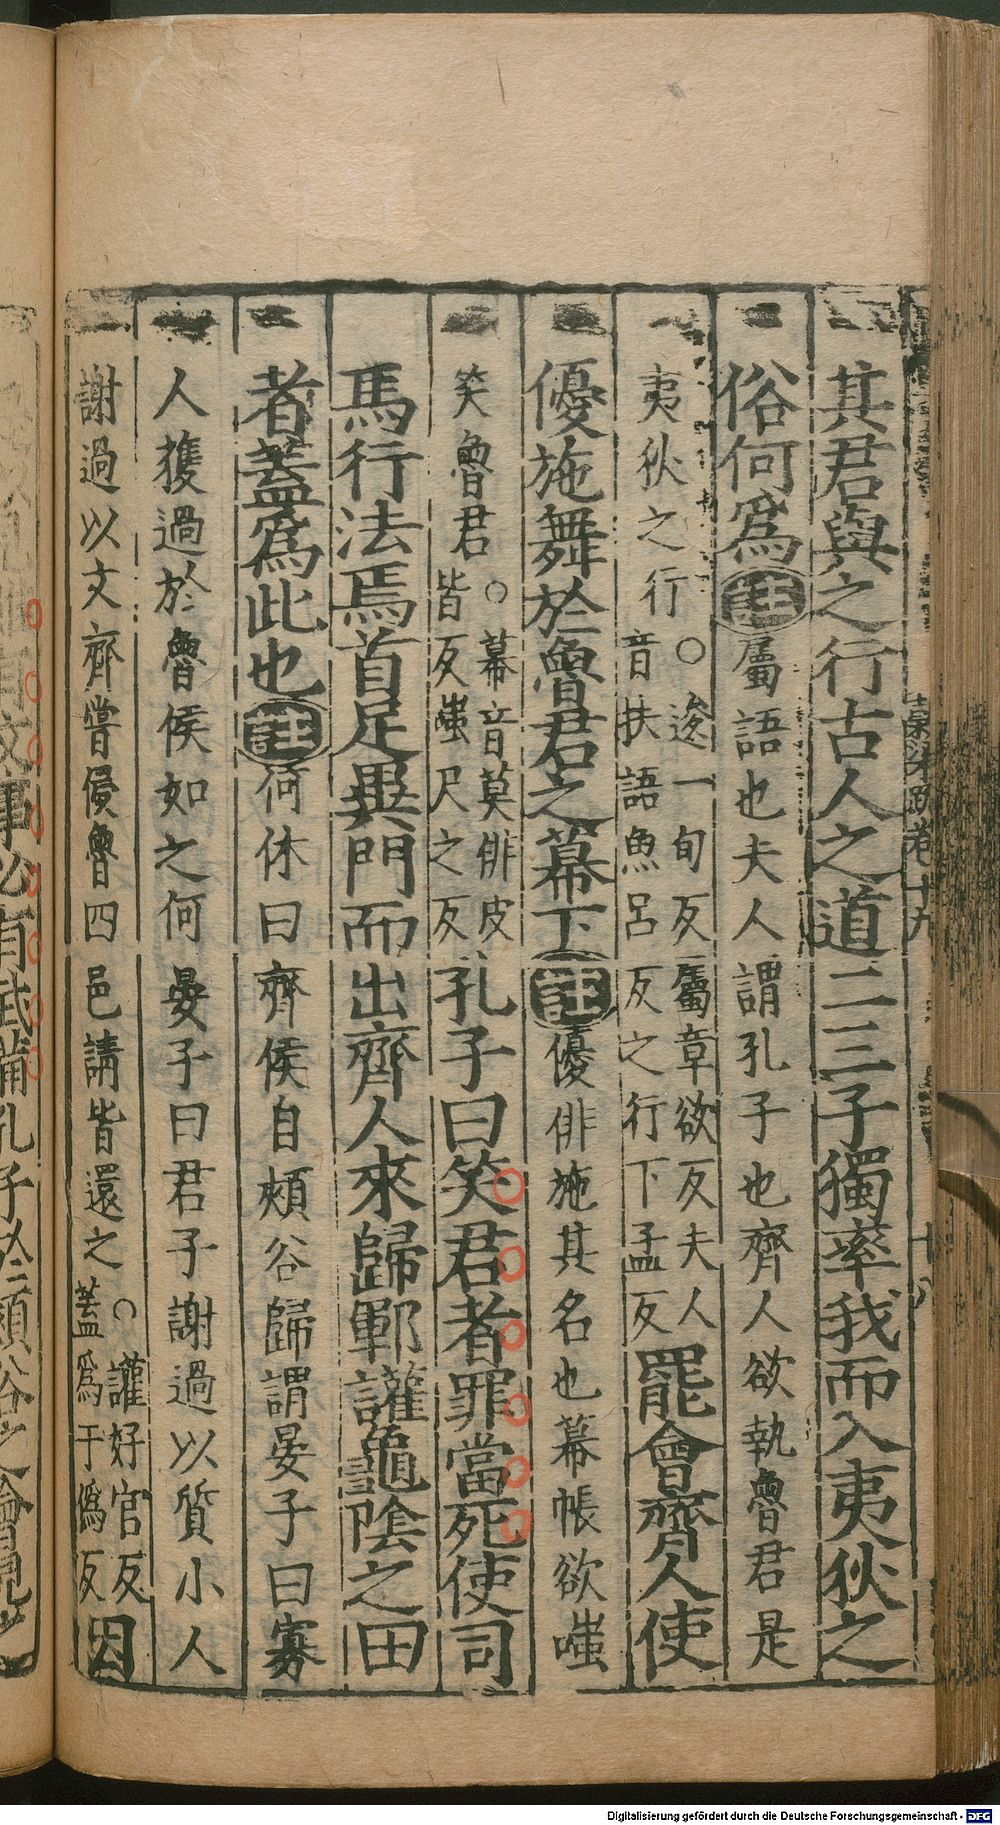 其君與之行古人之道二三子獨率我而入夷狄之
俗何爲註屬語也夫人謂孔子也齊人欲執魯君是
夷狄之行○逡一旬反屬章欲反夫人
音扶語魚呂反之行下孟反罷會齊人使
優施舞於魯君之幕下註優俳施其名也幕帳欲嗤
笑魯君○幕音莫俳皮
皆反嗤尺之反孔子曰笑君者罪當死使司
馬行法焉首足異門而出齊人來歸鄆讙龜陰之田
者蓋爲此也註何休曰齊侯自頰谷歸謂晏子曰寡
人獲過於魯侯如之何晏子曰君子謝過以質小人
謝過以文齊嘗侵魯四邑請皆還之○讙好官反
蓋爲于僞反因
梁疏卷十九
十八
事必有武備孔子於頰谷之會見
Digitalisierung gefördert durch die Deutsche Forschungsgemeinschaft - DFG